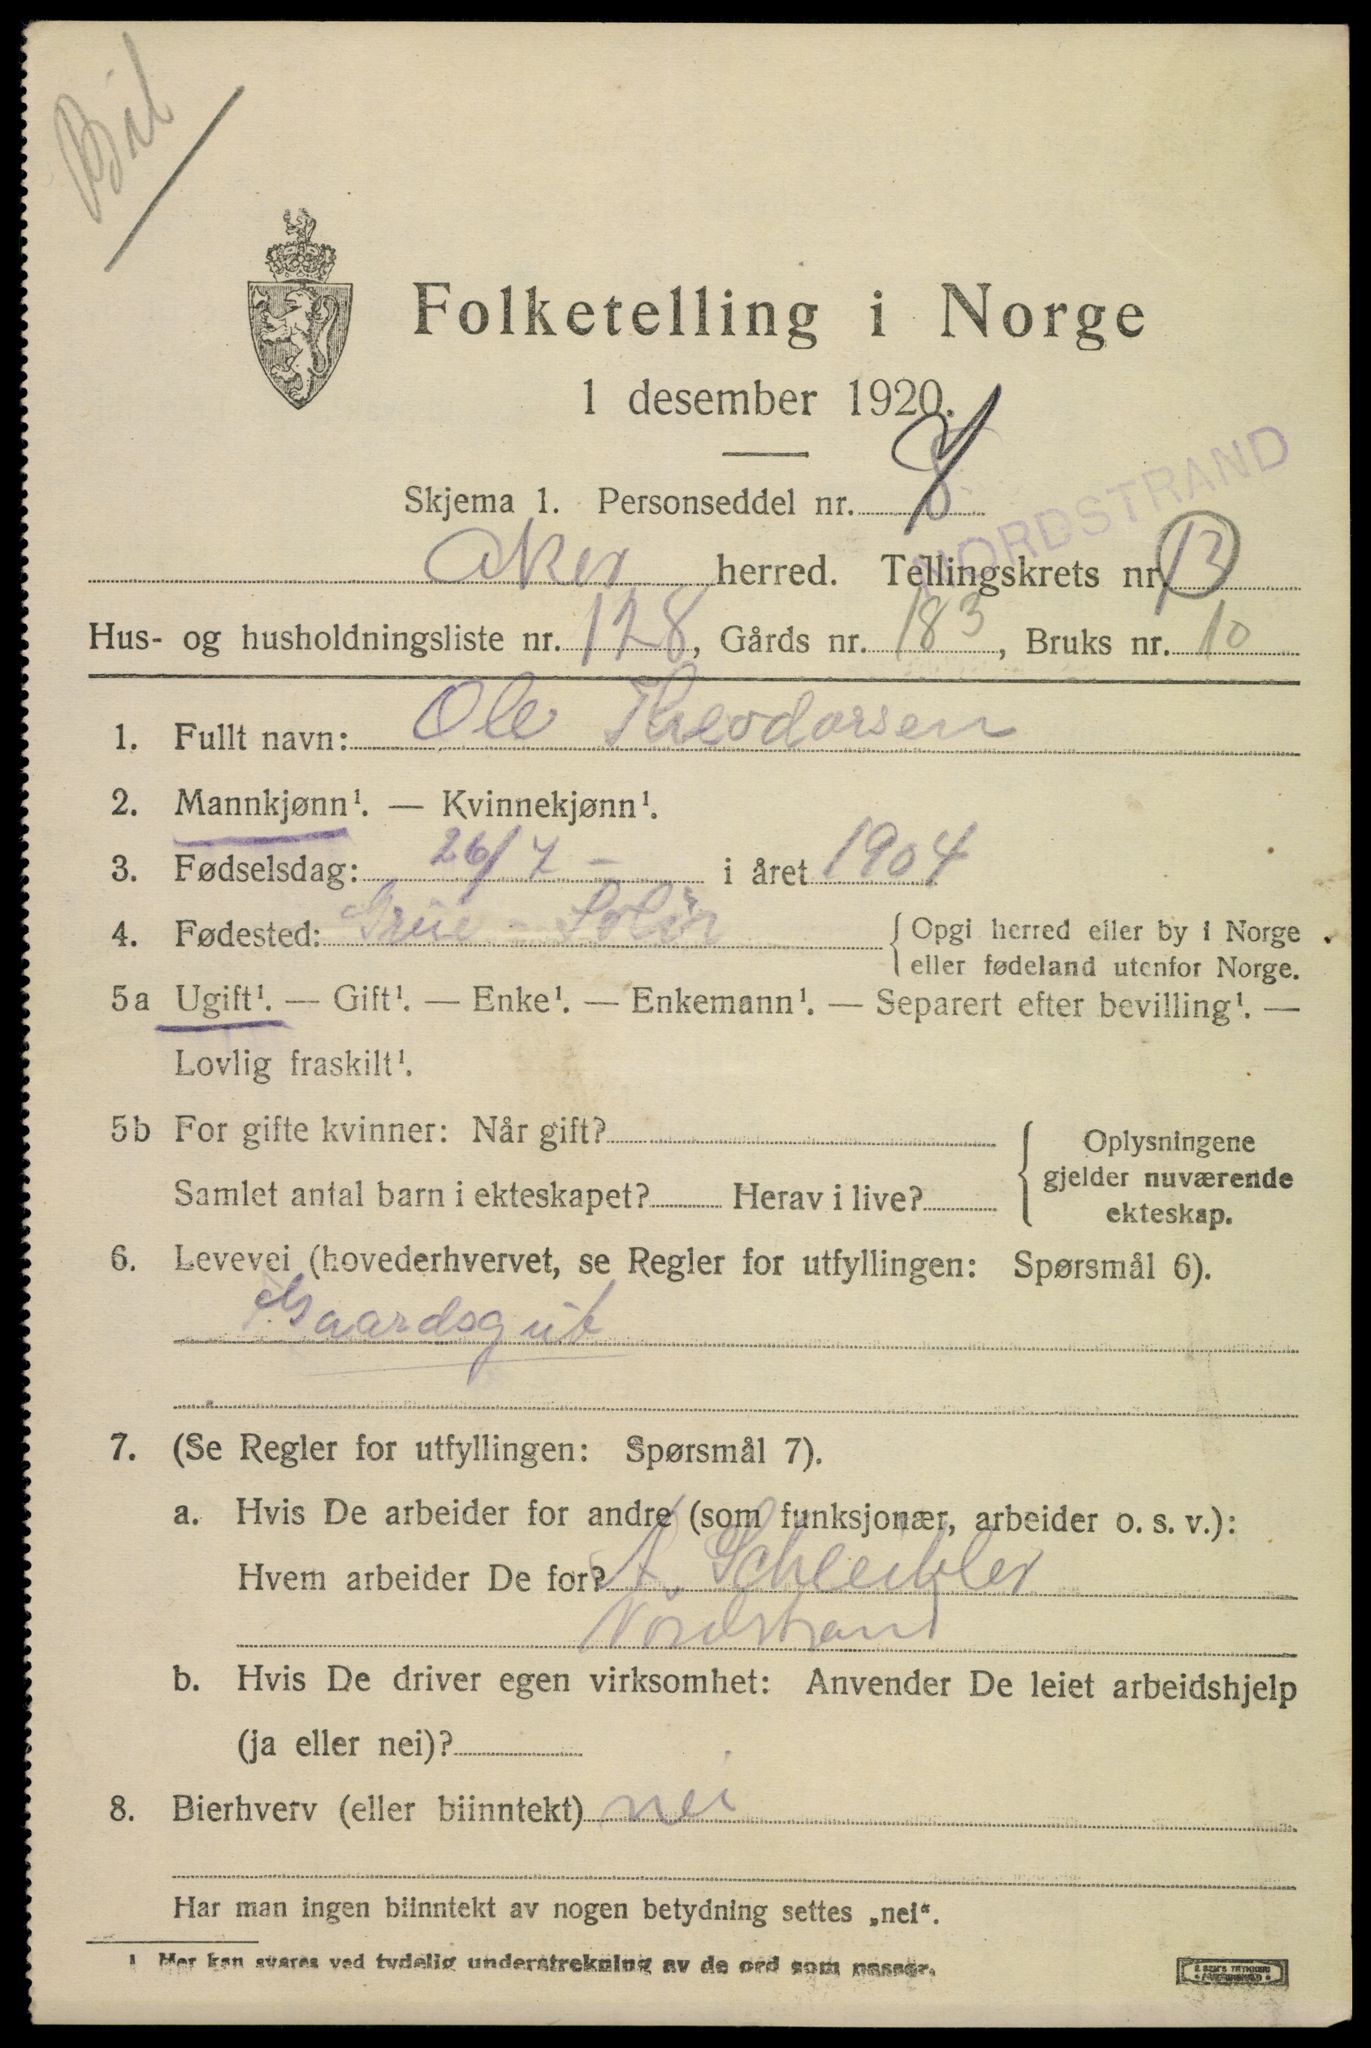 Bil
Folketelling i Norge
1 desember 1920.
Skjema 1. Personseddel nr. 8
NORDSTRAND
Aker herred. Tellingskrets nr. 13
Hus- og husholdningsliste nr. 128, Gårds nr. 183, Bruks nr. 10
1. Fullt navn: Ole Theodorsen
2. Mannkjønn¹. — Kvinnekjønn¹.
3. Fødselsdag: 26/7 - i året 1904
4. Fødested: Grue - Solør { Opgi herred eller by i Norge
eller fødeland utenfor Norge.
5a Ugift¹. — Gift¹. — Enke¹. — Enkemann¹. — Separert efter bevilling¹. —
Lovlig fraskilt¹.
5b For gifte kvinner: Når gift? { Oplysningene
gjelder nuværende
ekteskap.
Samlet antal barn i ekteskapet? Herav i live?
6. Levevei (hovederhvervet, se Regler for utfyllingen: Spørsmål 6).
Gaardsgut
7. (Se Regler for utfyllingen: Spørsmål 7).
a. Hvis De arbeider for andre (som funksjonær, arbeider o. s. v.):
Hvem arbeider De for? A. Scheibler
Nordstrand
b. Hvis De driver egen virksomhet: Anvender De leiet arbeidshjelp
(ja eller nei)?
8. Bierhverv (eller biinntekt) nei
Har man ingen biinntekt av nogen betydning settes „nei“.
¹ Her kan svares ved tydelig understrekning av de ord som passer.